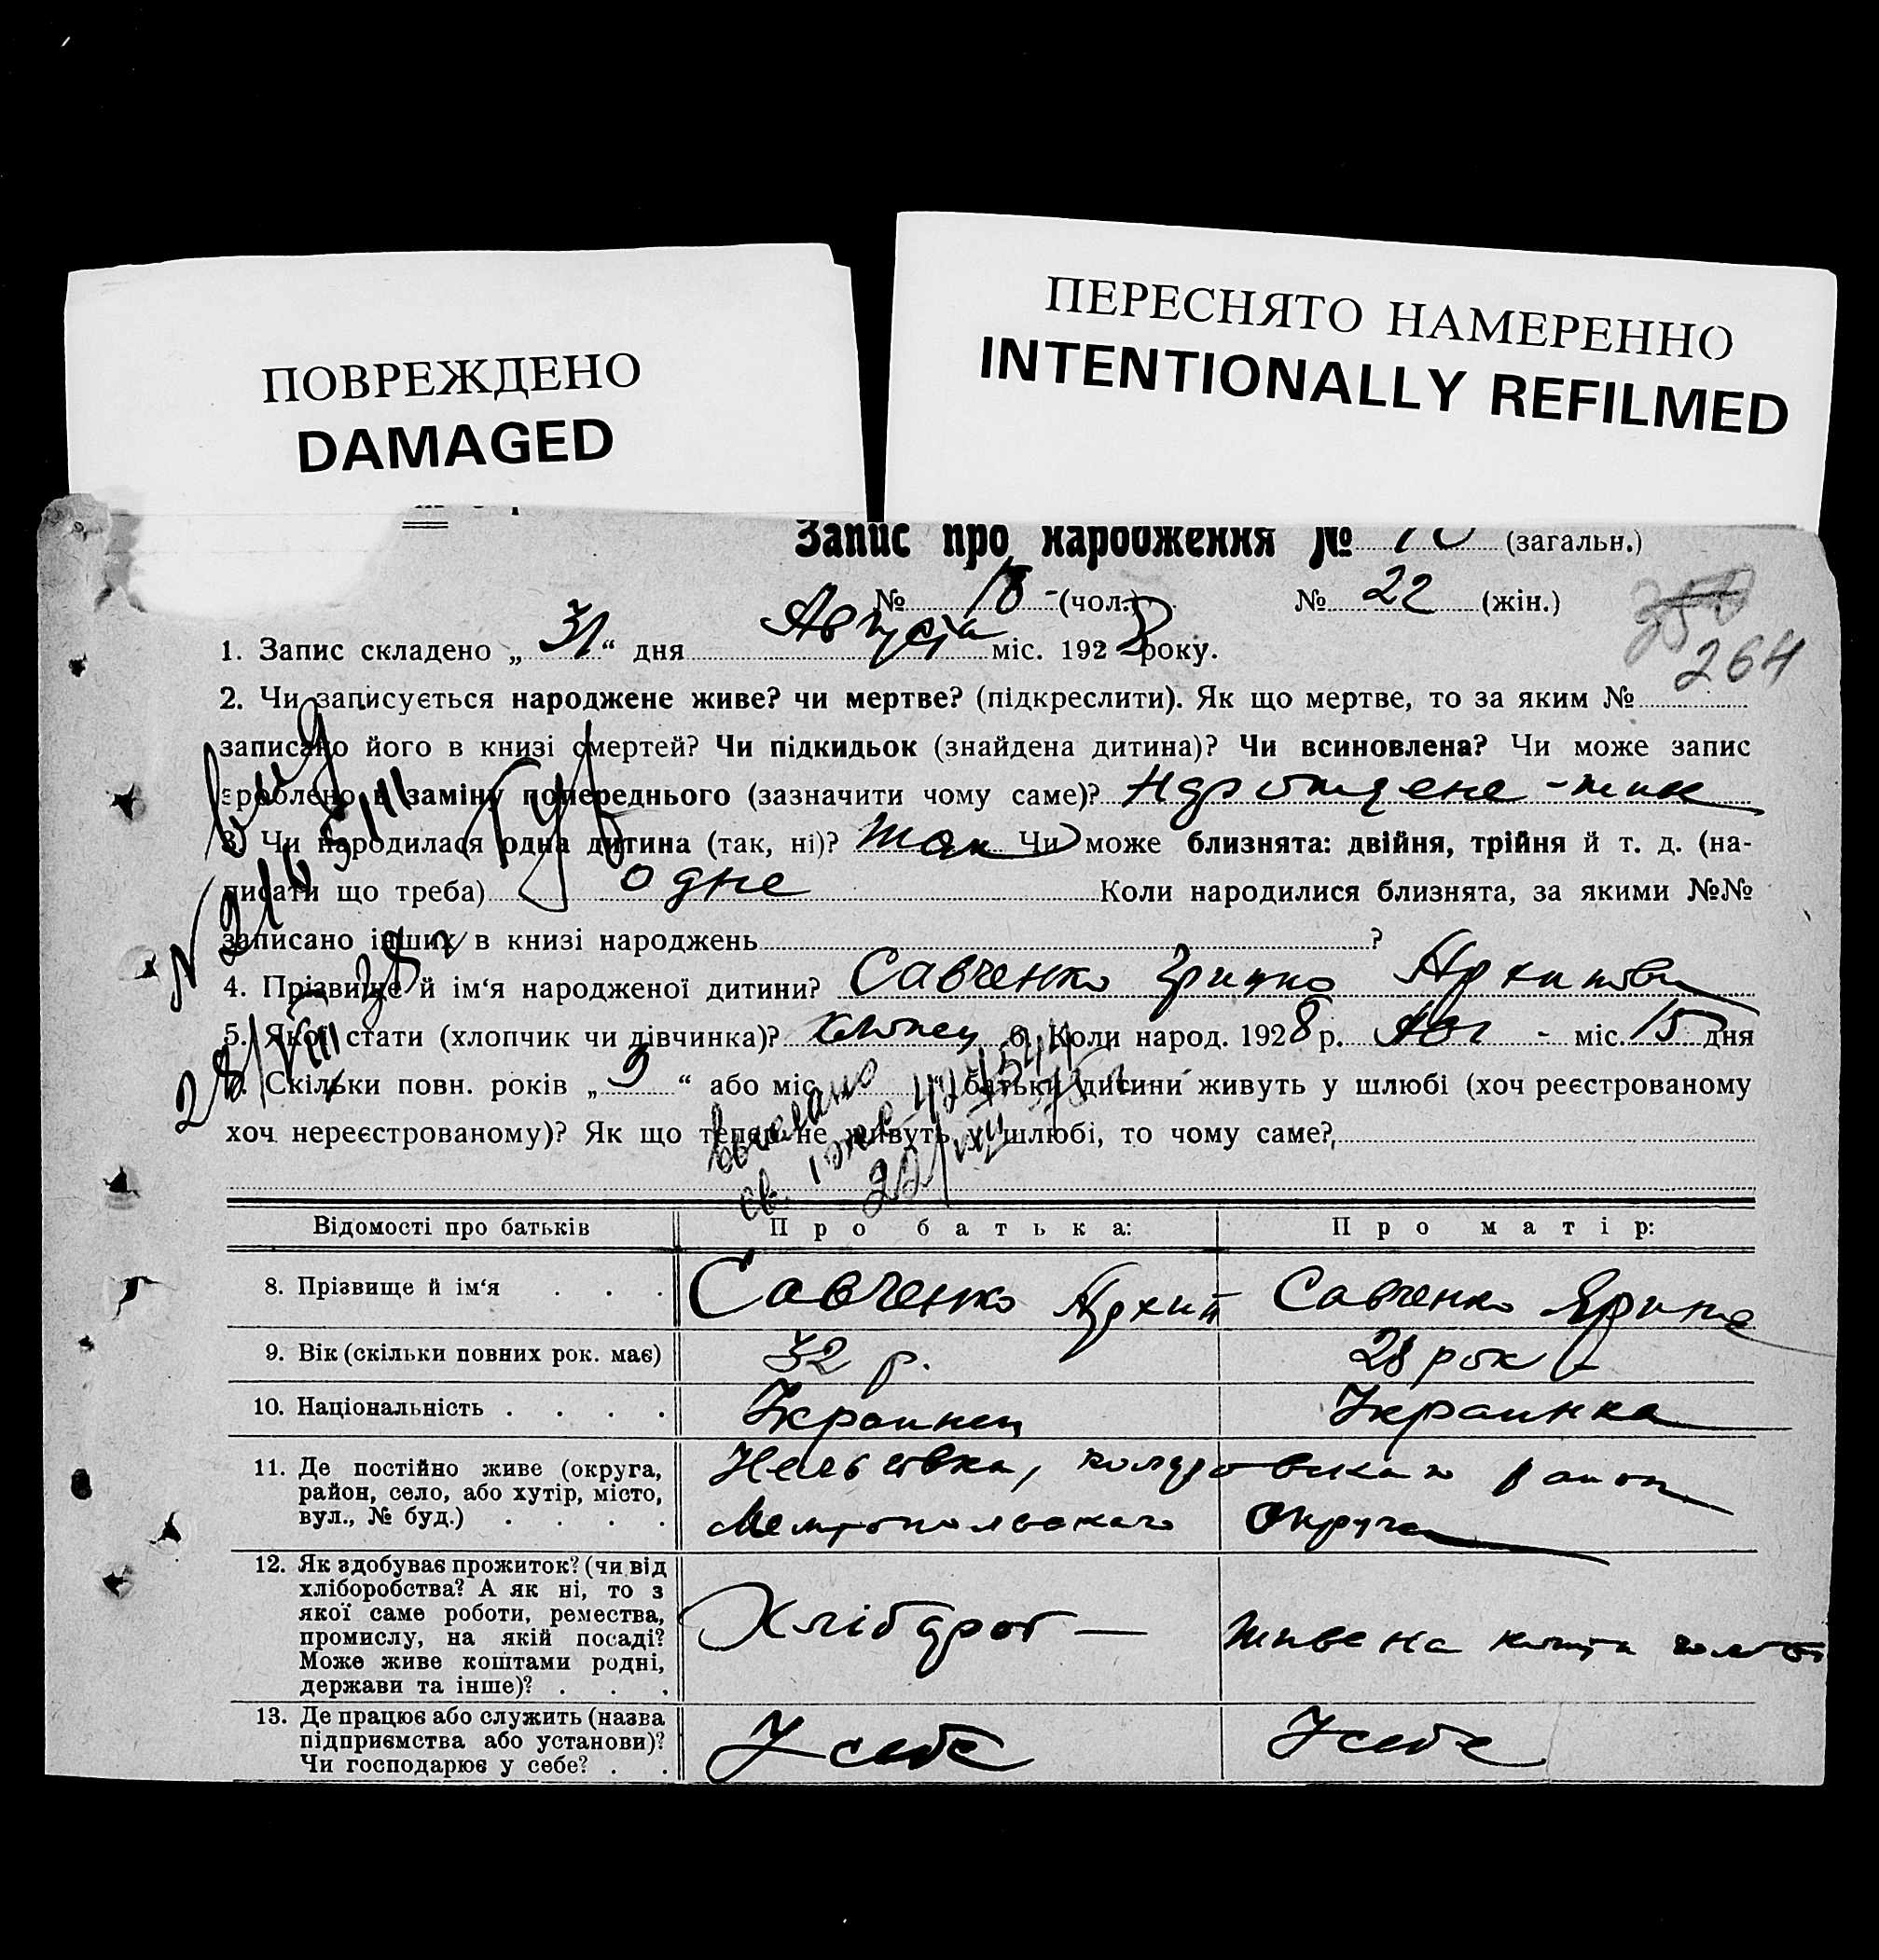 ПОВРЕЖДЕНО
DAMAGED
ПЕРЕСНЯТО НАМЕРЕННО
INTENTIONALLY REFILMED
Запис про народження № (загальн.)
№ 18 (чол.) № 22 (жін.)
350
264
1. Запис складено „31“ дня Августа міс. 1928 року.
2. Чи записується народжене живе? чи мертве? (підкреслити). Як що мертве, то за яким №
записано його в книзі смертей? Чи підкидьок (знайдена дитина)? Чи всиновлена? Чи може запис
зроблено в заміну попереднього (зазначити чому саме)?
3. Чи народилася одна дитина (так, ні)? так Чи може близнята: двійня, трійня й т. д. (на-
писати що треба) одне Коли народилися близнята, за якими №№
записано інших в книзі народжень ?
4. Прізвище й ім'я народженої дитини? Савченко Грицко
5. Якої стати (хлопчик чи дівчинка)? хлопец 6. Коли народ. 1928 р. Авг - міс. 15 дня
7. Скільки повн. років „9“ або міс. „ “ батьки дитини живуть у шлюбі (хоч реєстрованому
хоч нереєстрованому)? Як що тепер не живуть у шлюбі, то чому саме?
выслано
Відомості про батьків Про батька: Про матір:
8. Прізвище й ім‘я . . . Савченко Архип Савченко Ярина
9. Вік (скільки повних рок. має) 32 р. 28 рок
10. Національність . . . . Украинец Украинка
11. Де постійно живе (округа,
район, село, або хутір, місто,
вул., № буд.) . . . . Мелитопольского Округа
12. Як здобуває прожиток? (чи від
хліборобства? А як ні, то з
якої саме роботи, ремества,
промислу, на якій посаді?
Може живе коштами родні,
держави та інше)? . . . Хлібороб — живе на
13. Де працює або служить (назва
підприємства або установи)?
Чи господарює у себе? . . У себе У себе